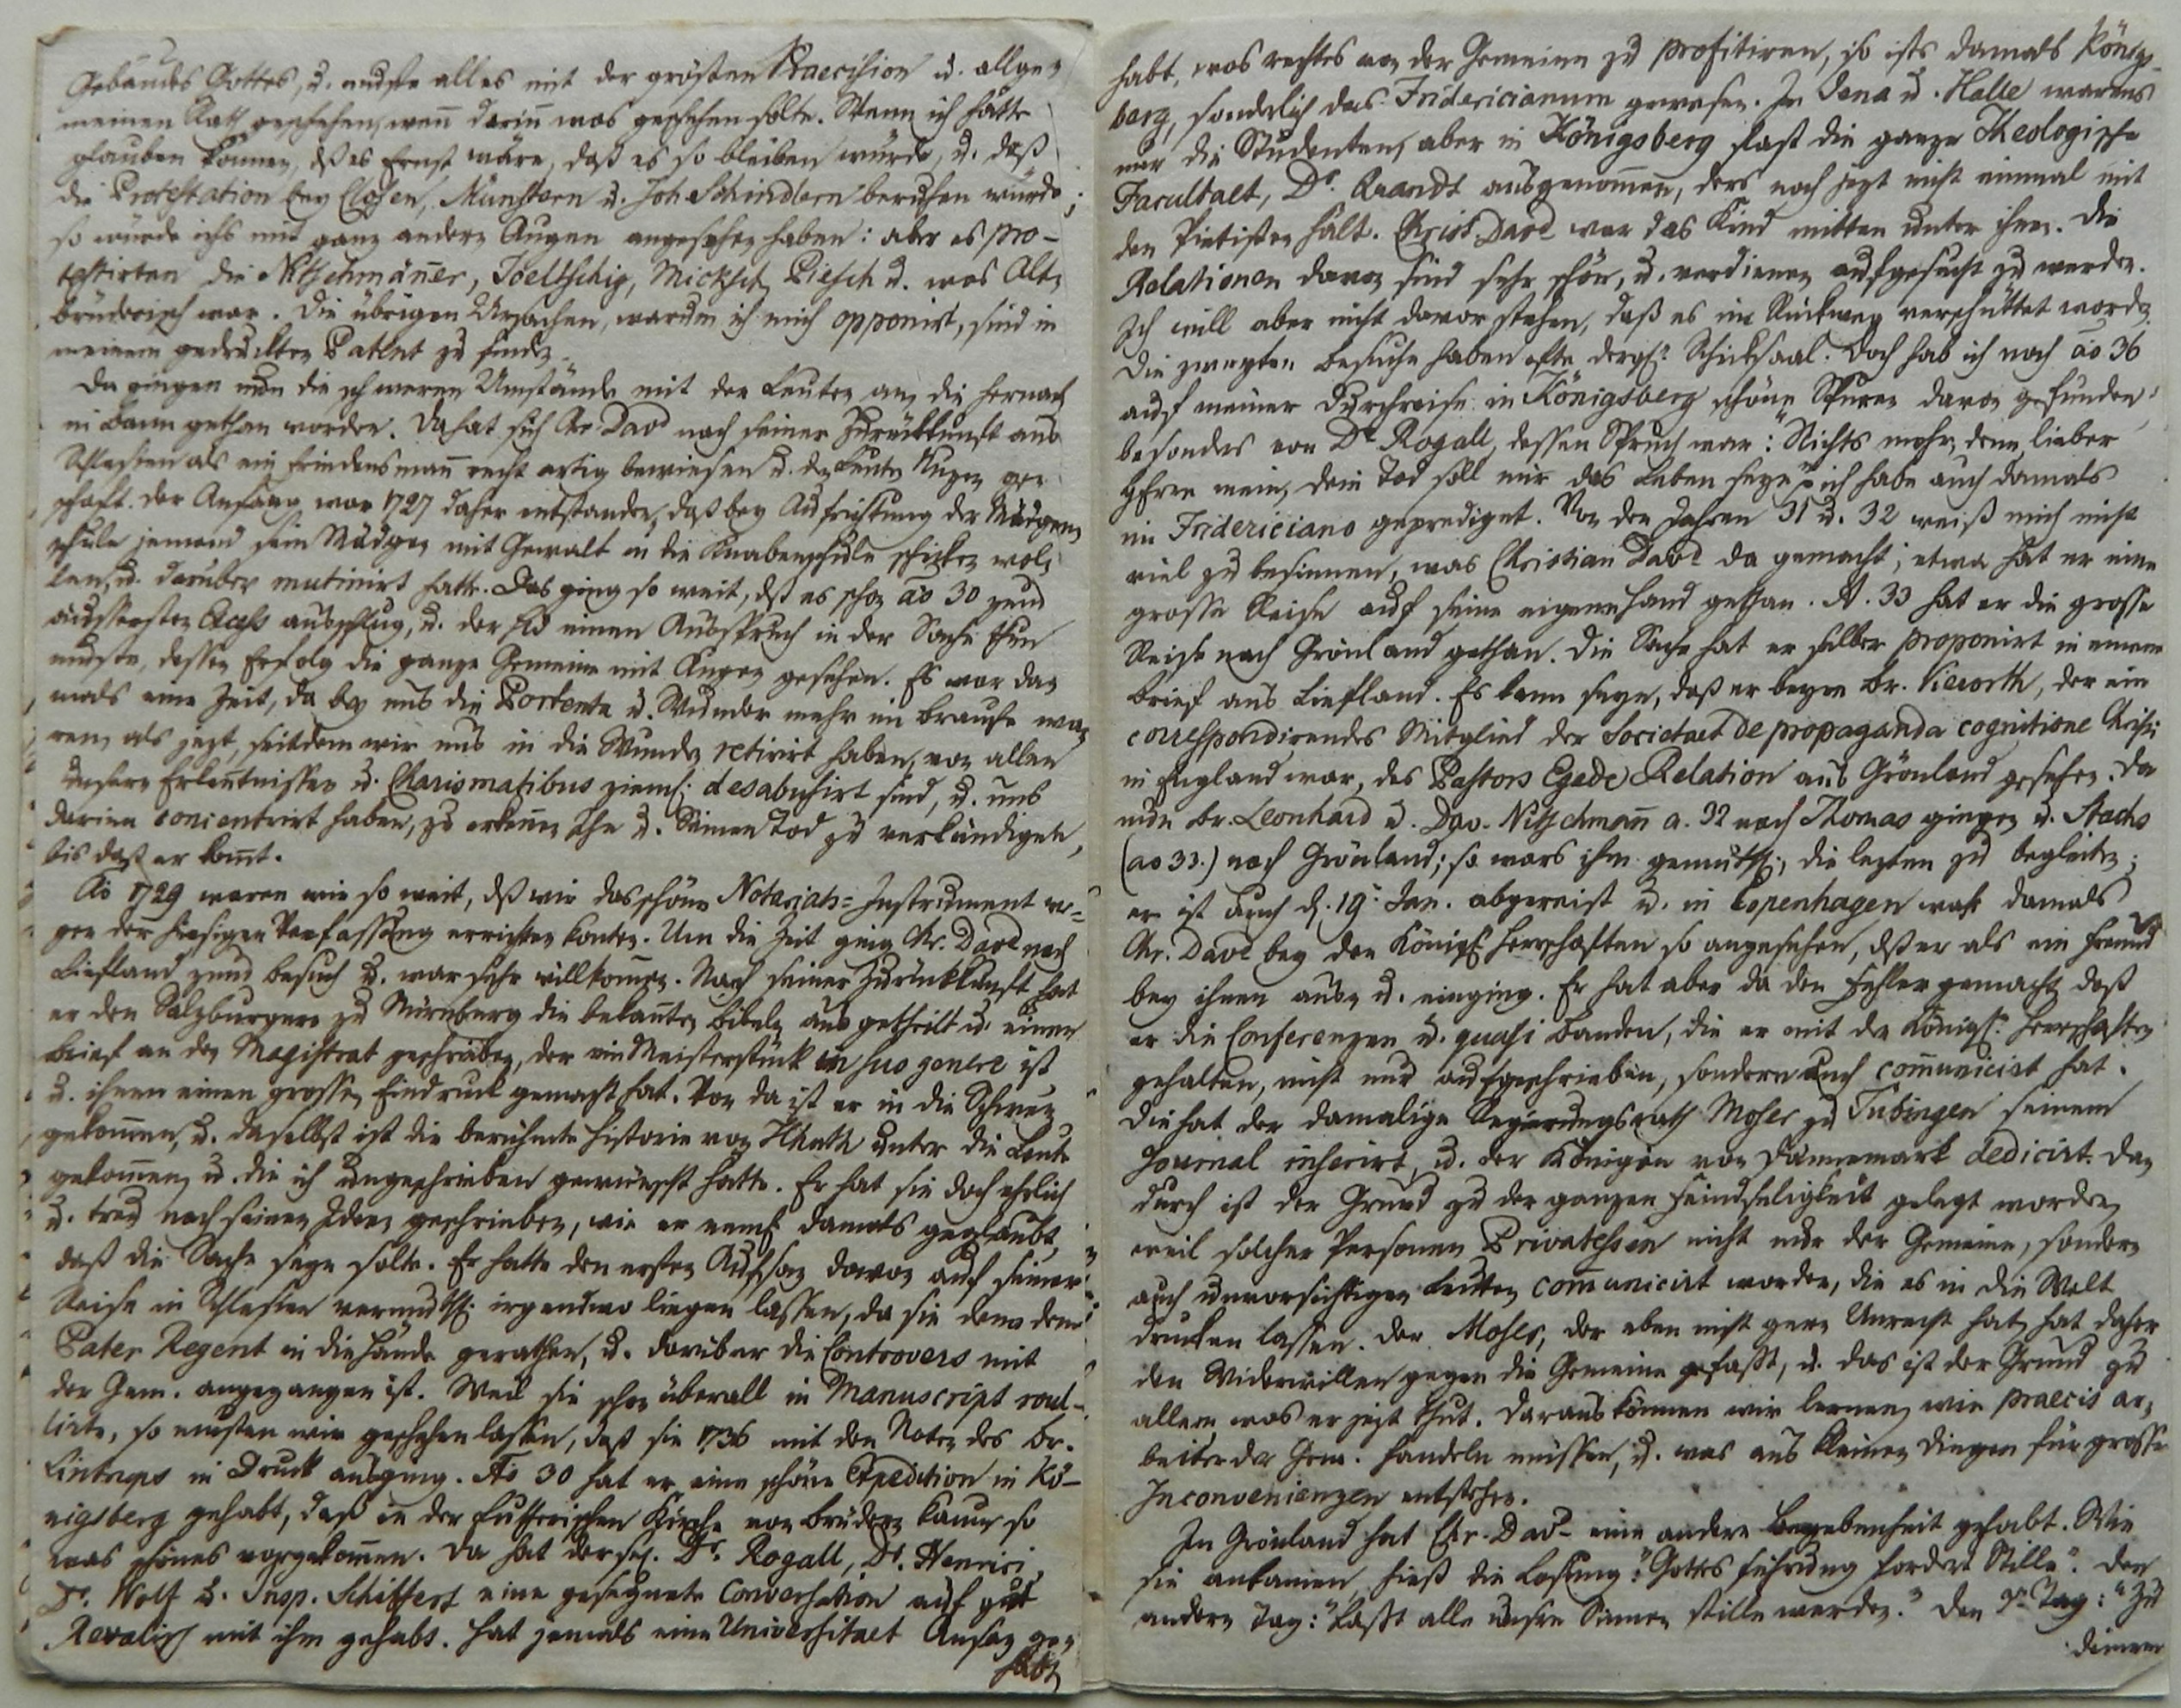 Gebäudes Gottes, u. muste alles mit der grösten Praecision u. allge-
meinen Rath geschehen, wenn darinn was geschehen solte. Wenn ich hätte
glauben können, dß es Ernst wäre, daß es so bleiben würde, u. daß
die Protestation bey Closen, Münstern u. Joh. Schindlern beruhen würde;
so würde ichs mit ganz andern Augen angesehen haben: aber es pro-
testirten die Nitschmänner, Töltschig, Micksch, Piesch u. was Alt-
brüderisch war. Die übrigen Ursachen, warum ich mich opponirt, sind in
meinem gedruckten Patent zu finden.
Da gingen nun die schweren Umstände mit den Leuten an, die hernach
in Bann gethan worden. Da hat sich Chr. Davd nach seiner Zurükkunft aus
Schlesien als ein Friedensmann recht artig bewiesen u. den Leuten Nuzen ge-
schaft. Der Anfang war 1727 daher entstanden, daß bey Aufrichtung der Mädgen-
schule jemand sein Mädgen mit Gewalt in die Knabenschule schicken wol-
len, u. darüber mutinirt hatte. Das ging so weit, dß es schon ao 30 zum
äussersten Excess ausschlug, u. der Hld einen Ausspruch in der Sache thun
muste, dessen Erfolg die ganze Gemeine mit Augen gesehen. Es war da-
mals eine Zeit, da bey uns die Portenta u. Wunder mehr im Brauche wa-
ren, als jezt, seitdem wir uns in die Wunden retirirt haben, von allen
unsern Erkentnissen u. Charismatibus zieml. desabusirt sind, u. uns
darinn concentrirt haben, zu erkennen Ihn u. Seinen Tod zu verkündigen,
bis daß er komt.
Ao 1729 waren wir so weit, dß wir das schöne Notariats-Instrument we-
gen der hiesigen Verfassung errichten konten. Um die Zeit ging Chr. Davd nach
Liefland zum Besuch u. war sehr willkommen. Nach seiner Zurükkunft hat
er den Salzburgern zu Nürnberg die bekannten Bibeln ausgetheilt u. einen
Brief an den Magistrat geschrieben, der ein Meisterstück in suo genere ist
u. ihnen einen grossen Eindruck gemacht hat. Von da ist er in die Schweiz
gekommen, u. daselbst ist die berühmte Historie von Hhuth unter die Leute
gekommen, u. die ich ungeschrieben gewünscht hätte. Er hat sie doch ehrlich
u. treu nach seinen Ideen geschrieben, wie er neml. damals geglaubt,
daß die Sache seyn solte. Er hatte den ersten Aufsaz davon auf seiner
Reise in Schlesien vermuthl. irgendwo liegen lassen, da sie denn dem
Pater Regent in die Hände gerathen, u. darüber die Controvers mit
der Gem. angegangen ist. Weil sie schon überall in Manuscript roul-
lirte, so musten wir geschehen lassen, daß sie 1736 mit den Noten des Br.
Lintrups in Druck ausging. Ao 30 hat er eine schöne Expedition in Kö-
nigsberg gehabt, daß in der Lutherischen Kirche von Brüdern kaum so
was schönes vorgekommen. Da hat der sel. Dr. Rogall, Dr. Henrici,
Dr. Wolf u. Insp. Schiffert eine gesegnete Conversation auf gut
Revalisch mit ihm gehabt. Hat jemals eine Universitaet Anfang ge-
habt,
habt, was rechtes von der Gemeine zu profitiren, so ists damals Königs-
berg, sonderlich das Fridericianum gewesen. In Jena u. Halle warens
nur die Studenten, aber in Königsberg fast die ganze Theologische
Facultaet, Dr. Quandt ausgenommen, ders noch jezt nicht einmal mit
den Pietisten hält. Christ. Davd war das Kind mitten unter ihnen. Die
Relationen davon sind sehr schön, u. verdienen aufgesucht zu werden.
Ich will aber nicht davor stehen, daß es im Rückweg verschüttet worden.
Die zweyten Besuche haben ofte dergl. Schicksaal. Doch hab ich noch ao 36
auf meiner Durchreise in Königsberg schöne Spuren davon gefunden,
besonders von Dr. Rogall, dessen Spruch war: "Nichts mehr, denn, lieber
HErre mein, dein Tod soll mir das Leben seyn." ich habe auch damals
im Fridericiano geprediget. Von den Jahren 31 u. 32 weiß mich nicht
viel zu besinnen, was Christian Davd da gemacht; etwa hat er eine
grosse Reise auf seine eigene Hand gethan. A. 33 hat er die grosse
Reise nach Grönland gethan. Die Sache hat er selber proponirt in einem
Brief aus Liefland. Es kann seyn, daß er beym Br. Vieroth, der ein
correspondirendes Mitglied der Societaet de propaganda cognitione Christi
in England war, des Pastors Egede Relation aus Grönland gesehen. Da
nun Br. Leonhard u. Dav. Nitschmann a. 32 nach Thomas gingen u. Stachs
(ao 33.) nach Grönland; so wars ihm gemüthl., die lezten zu begleiten;
er ist auch d. 19. Jan. abgereist u. in Copenhagen war damals
Chr. Davd bey den Königl. Herrschaften so angesehen, dß er als ein Freund
bey ihnen aus- u. einging. Er hat aber da den Fehler gemacht, daß
er die Conferenzen u. quasi Banden, die er mit den Königl. Herrschaften
gehalten, nicht nur aufgeschrieben, sondern auch communicirt hat.
Die hat der damalige Regierungsrath Moser zu Tubingen seinem
Journal inserirt, u. der Königin von Dännemark dedicirt. Da-
durch ist der Grund zu der ganzen Feindseligkeit gelegt worden,
weil solcher Personen Privatissima nicht nur der Gemeine, sondern
auch unvorsichtigen Leuten communicirt worden, die es in die Welt
drucken lassen. Der Moser, der eben nicht gern Unrecht hat, hat daher
den Widerwillen gegen die Gemeine gefaßt, u. das ist der Grund zu
allem was er jezt thut. Daraus können wir lernen, wie praecis ar-
beiter der Gem. handeln müssen, u. was aus kleinen Dingen für grosse
Inconvenienzen entstehen.
In Grönland hat Chr. Davd eine andere Begebenheit gehabt. Wie
sie ankamen, hieß die Losung: "Gottes führung fordert Stille". Den
andern Tag: "Laßt alle unsre Sinnen stille werden." Den 3n Tag: "Zu
deinen